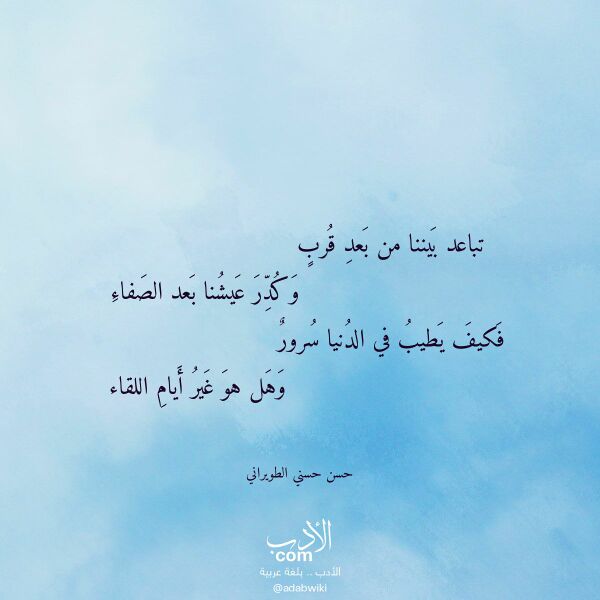 تباعد بَيننا من بَعدِ قُربٍ
وَكُدِّرَ عَيشُنا بَعد الصَفاءِ
فَكيفَ يَطيبُ في الدُنيا سُرورٌ
وَهَل هوَ غَيرُ أَيامِ اللقاء
حسن حسني الطويراني
الأدب
com
الأدب .. بلغة عربية
@adabwiki